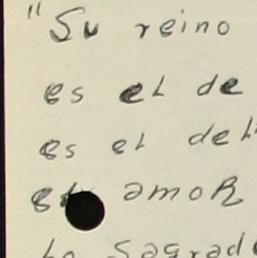 "Su reino
es el de
es el del
amor
lo sagrado